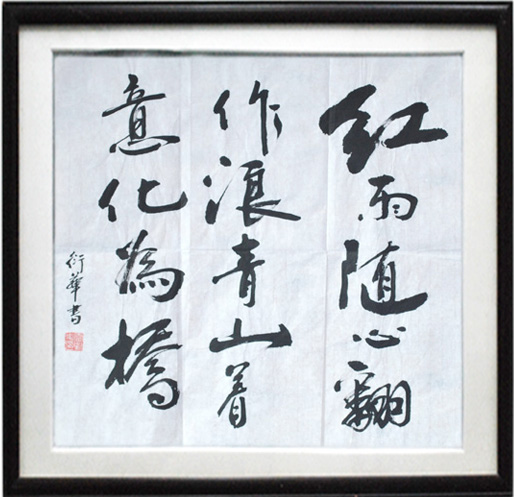 红雨随心翻
作浪青山着
意化為橋
衍華書